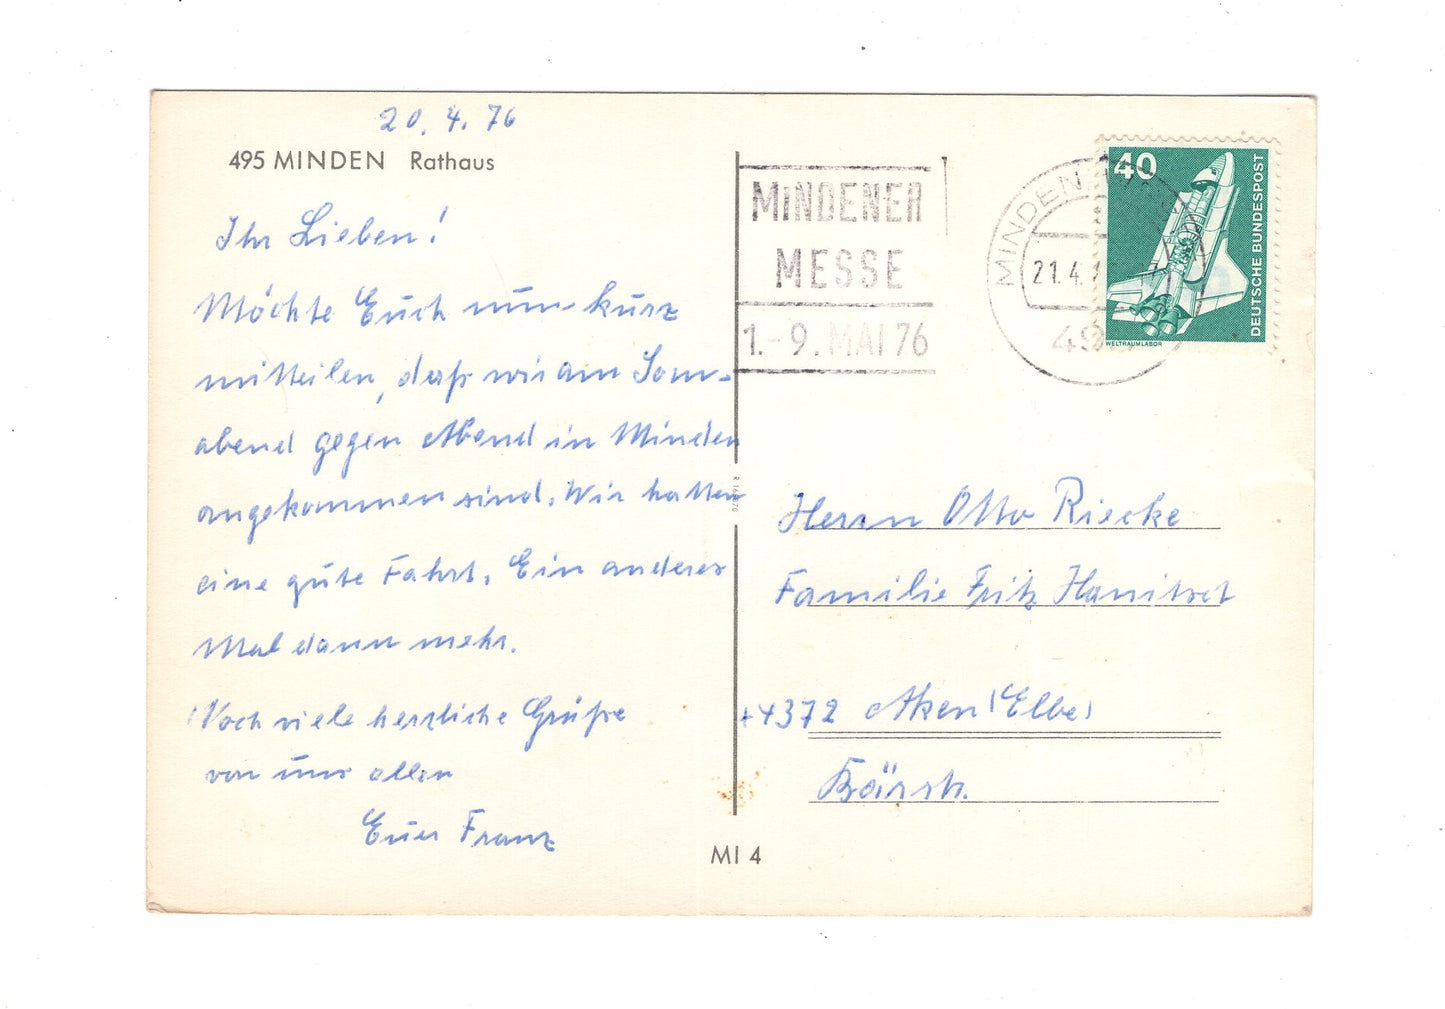 20.4.76
495 MINDEN Rathaus
Ihr Lieben!
Möchte Euch nun kurz
mitteilen, daß wir am Sonn-
abend gegen Abend in Minden
angekommen sind. Wir hatten
eine gute Fahrt. Ein anderes
Mal dann mehr.
Noch viele herzliche Grüße
von uns allen
Euer Franz
MI 4
MINDENER
MESSE
1.-9. MAI 76
MINDEN
21.4.
495
40
DEUTSCHE BUNDESPOST
WELTRAUMLABOR
Herrn Otto Riecke
Familie Fritz
4372 Aken (Elbe)